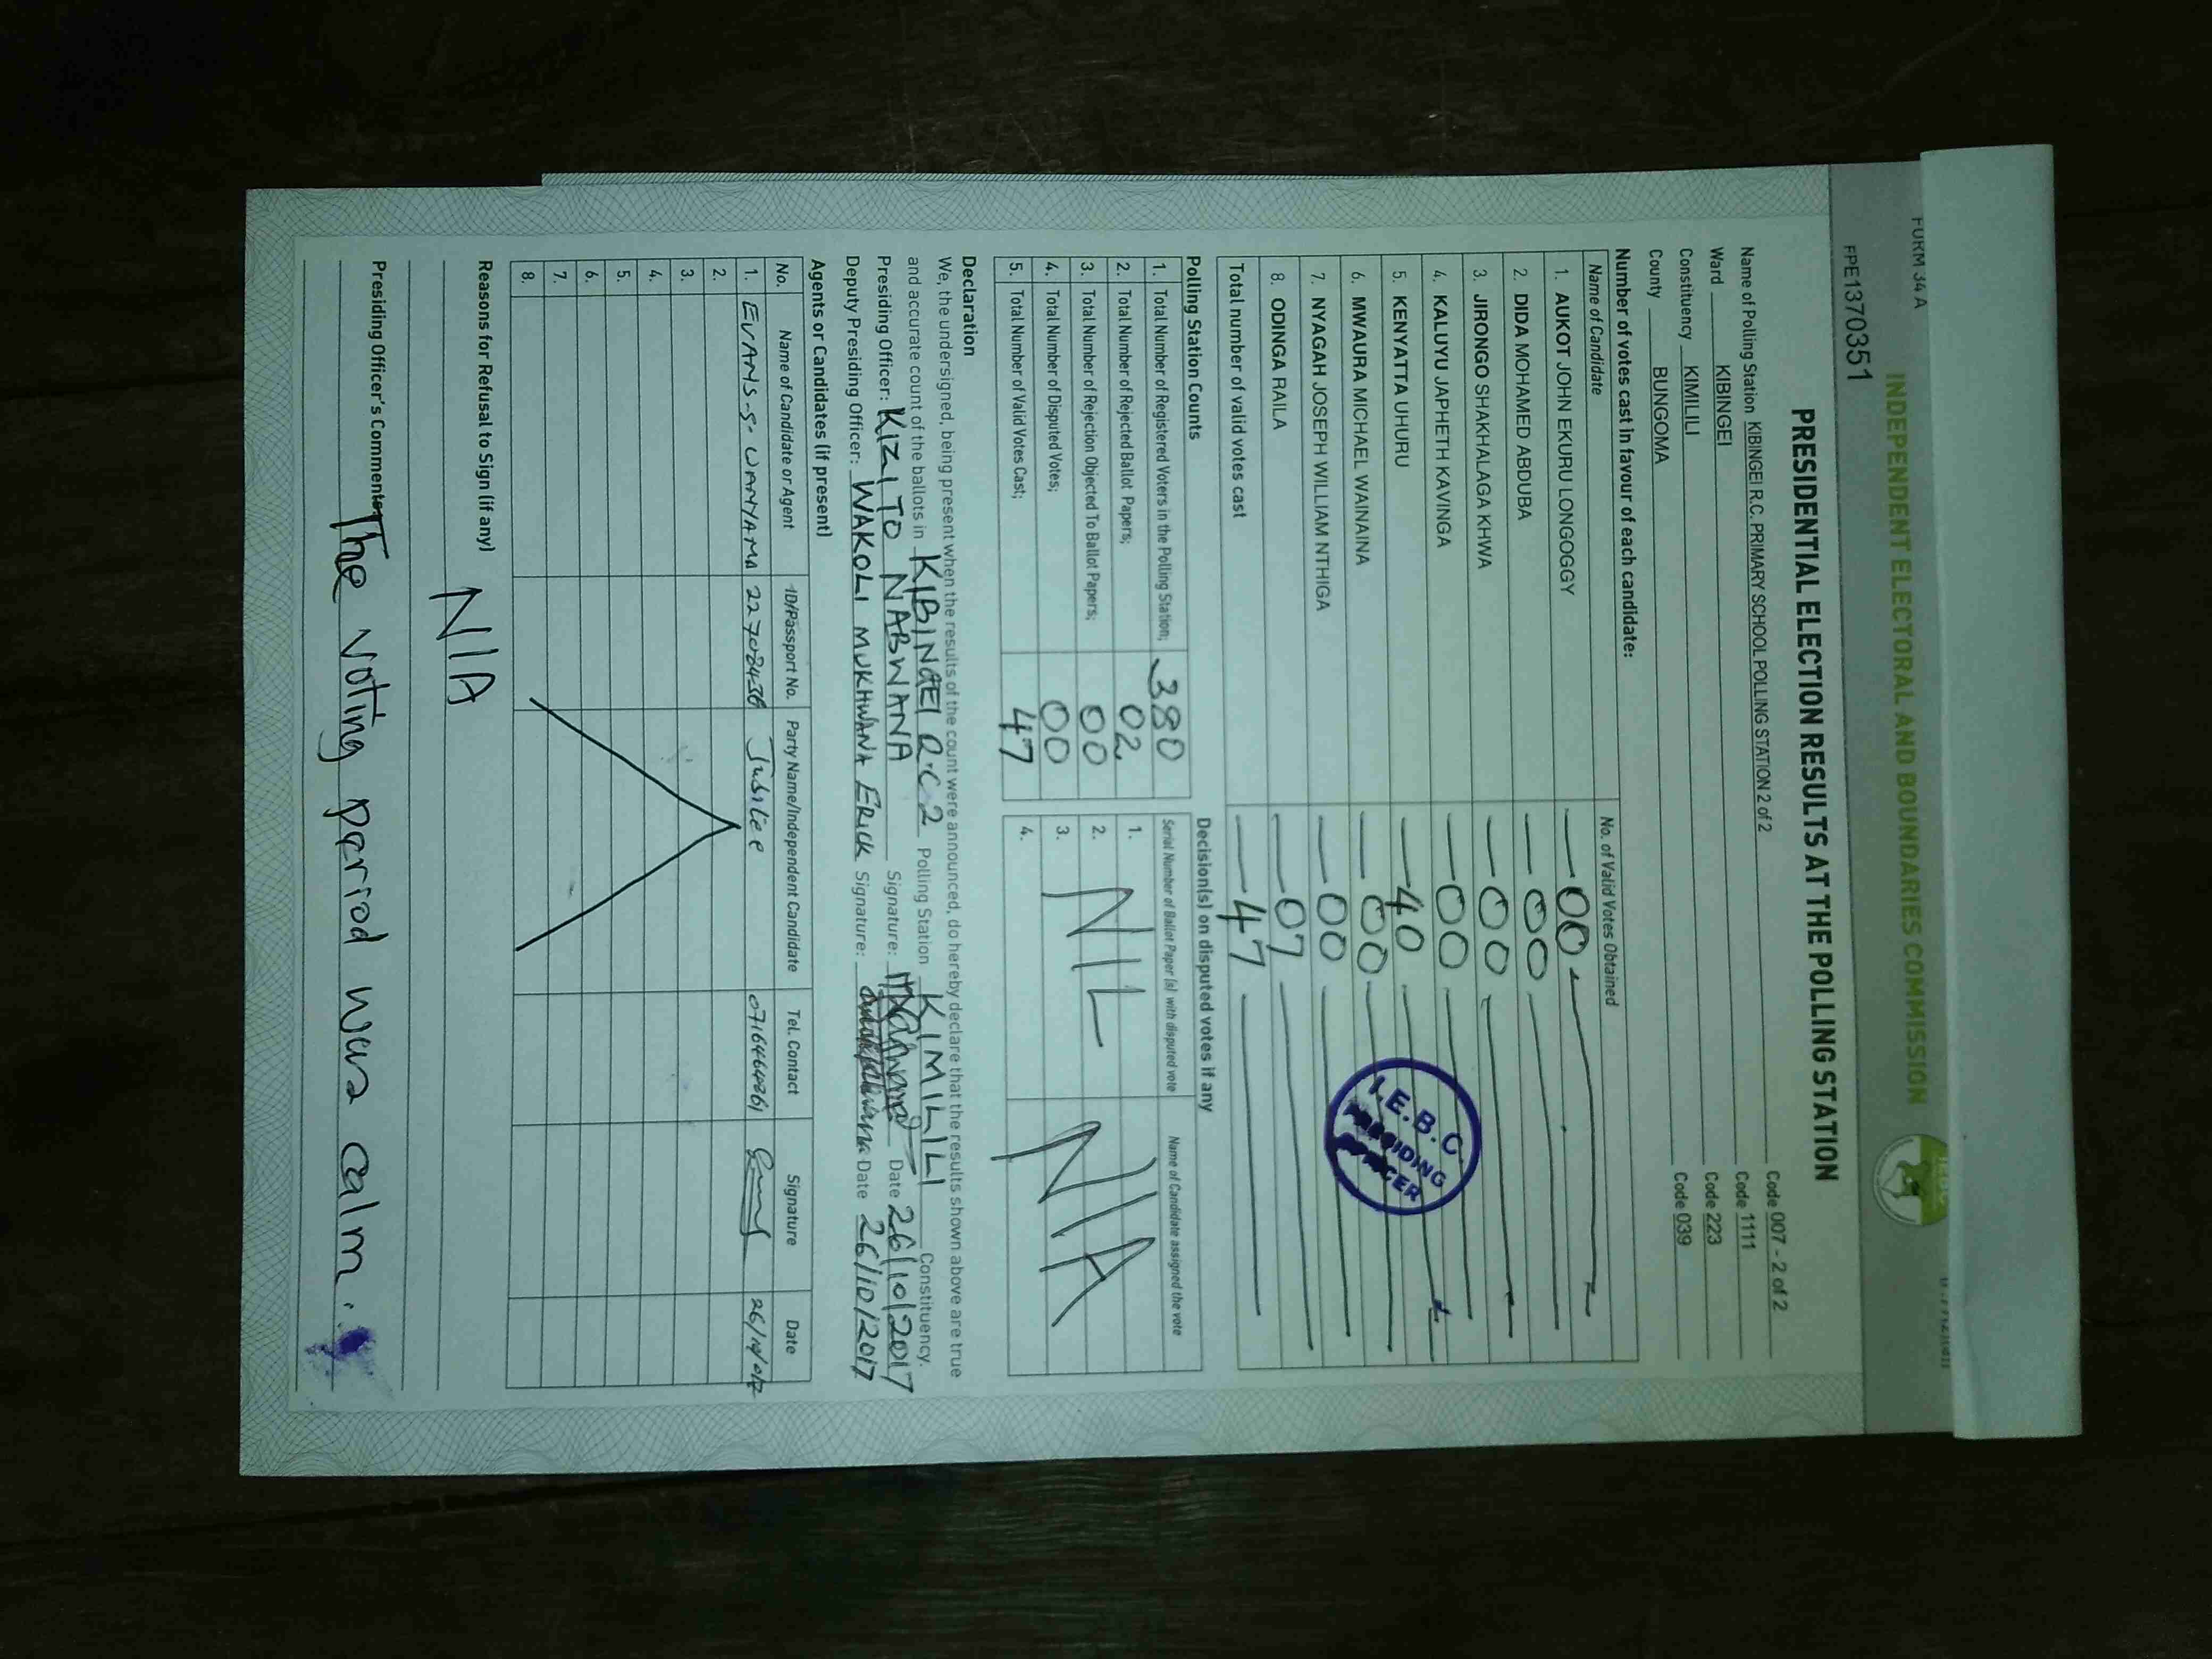 FORM 34 A
INDEPENDENT ELECTORAL AND BOUNDARIES COMMISSION
FPE1370351
PRESIDENTIAL ELECTION RESULTS AT THE POLLING STATION
Name of Polling Station KIBINGEI R.C. PRIMARY SCHOOL POLLING STATION 2 of 2 Code 007 - 2 of 2
Ward KIBINGEI Code 1111
Constituency KIMILILI Code 223
County BUNGOMA Code 039
Number of votes cast in favour of each candidate:
Name of Candidate No. of Valid Votes Obtained
1. AUKOT JOHN EKURU LONGOGGY 00
2. DIDA MOHAMED ABDUBA 00
3. JIRONGO SHAKHALAGA KHWA 00
4. KALUYU JAPHETH KAVINGA 00
5. KENYATTA UHURU 40
6. MWAURA MICHAEL WAINAINA 00
7. NYAGAH JOSEPH WILLIAM NTHIGA 00
8. ODINGA RAILA 07
Total number of valid votes cast 47
I.E.B.C.
Polling Station Counts
1. Total Number of Registered Voters in the Polling Station; 380
2. Total Number of Rejected Ballot Papers; 02
3. Total Number of Rejection Objected To Ballot Papers; 00
4. Total Number of Disputed Votes; 00
5. Total Number of Valid Votes Cast; 47
Decision(s) on disputed votes if any
Serial Number of Ballot Paper (s) with disputed vote Name of Candidate assigned the vote
1.
2. NIL N/A
3.
4.
Declaration
We, the undersigned, being present when the results of the count were announced, do hereby declare that the results shown above are true
and accurate count of the ballots in KIBINGEI R.C 2 Polling Station KIMILILI Constituency.
Presiding Officer: KIZITO NABWANA Signature: Date 26/10/2017
Deputy Presiding Officer: WAKOLI MUKHWANA ERICK Signature: Date 26/10/2017
Agents or Candidates (if present)
No. Name of Candidate or Agent ID/Passport No. Party Name/Independent Candidate Tel. Contact Signature Date
1. EVANS S. WANYAMA Jubilee
2.
3.
4.
5.
6.
7.
8.
Reasons for Refusal to Sign (if any)
N/A
Presiding Officer's Comments: The voting period was calm.